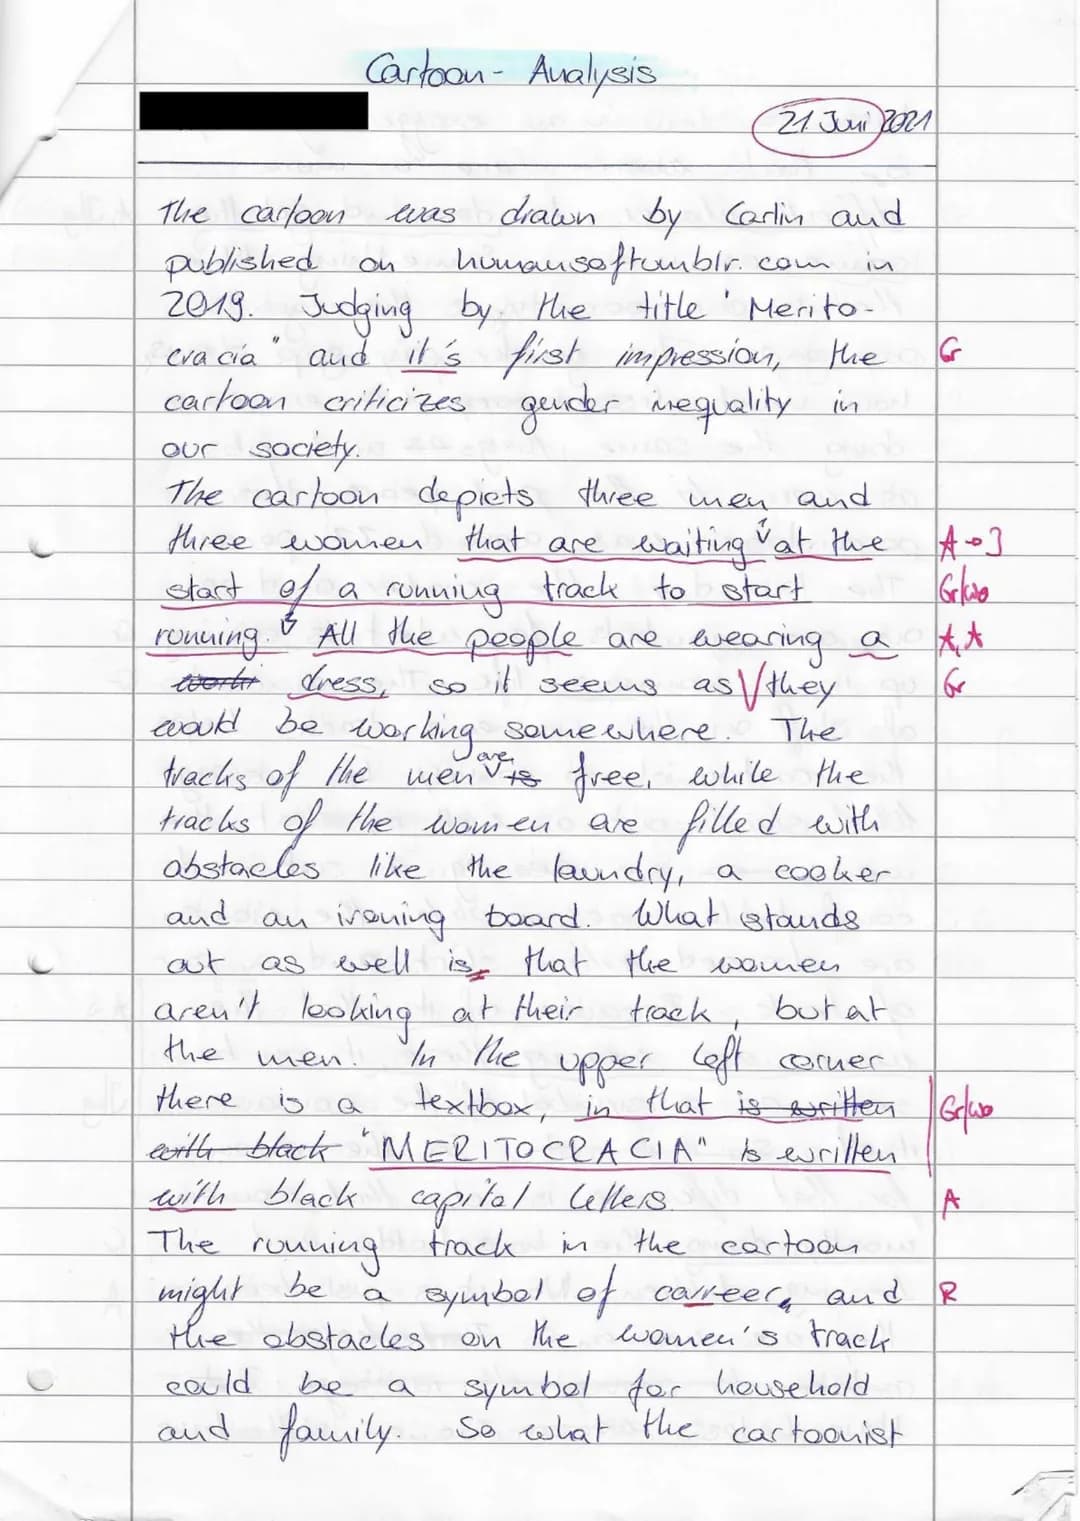 Cartoon- Analysis
21 Juni 2021
The cartoon was drawn by Carlin and
published on humansoftumblr.com in
2019. Judging by the title 'Merito-
cracia" and it's first impression, the Gr
cartoon criticizes gender inequality in
our society.
The cartoon depicts three men and
three women that are waiting at the A→3
start of a running track to start Gr/wo
running. All the people are wearing a A, A
workr dress, so it seems as they Gr
would be working somewhere. The
tracks of the men is are free, while the
tracks of the women are filled with
obstacles like the laundry, a cooker
and an ironing board. What stands
out as well is, that the women
aren't looking at their track, but at
the men. In the upper left corner
there is a textbox, in that is written Gr/wo
with black "MERITOCRACIA" is written
with black capital letters. A
The running track in the cartoon
might be a symbol of carreer, and R
the obstacles on the women's track
could be a symbol for household
and family. So what the cartoonist